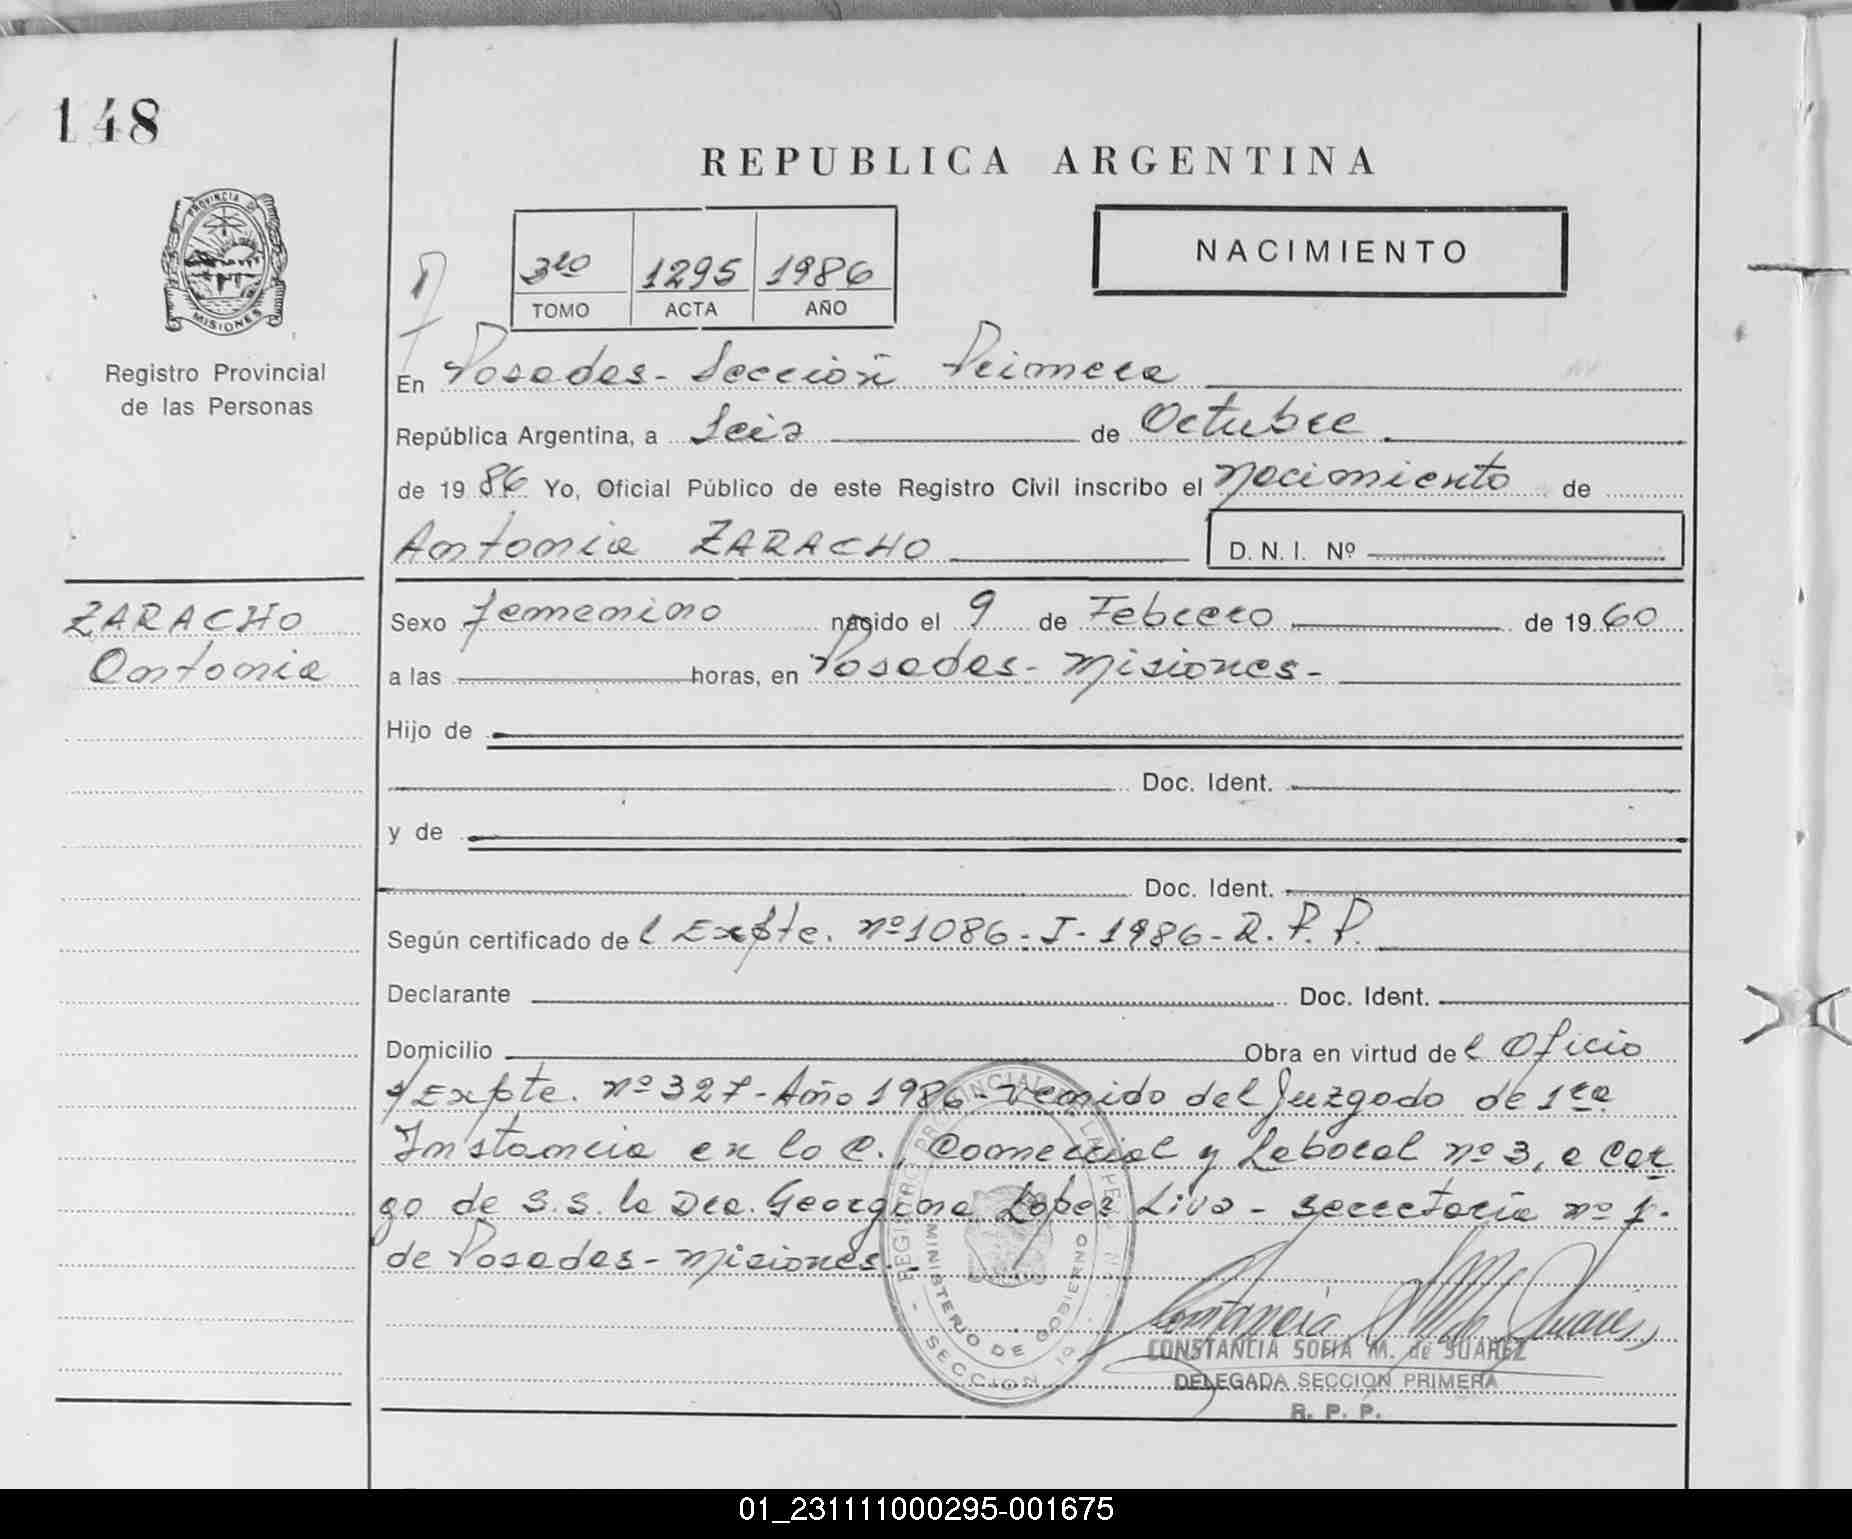 148
REPUBLICA ARGENTINA
PROVINCIA DE
MISIONES
Registro Provincial
de las Personas
3ro 1295 1986
TOMO ACTA AÑO
NACIMIENTO
En Posadas - Sección Primera
República Argentina, a Seis de Octubre
de 1986 Yo, Oficial Público de este Registro Civil inscribo el Nacimiento de
Antonia ZARACHO D.N.I. Nº
ZARACHO
Antonia
Sexo femenino nacido el 9 de Febrero de 1960
a las horas, en Posadas - Misiones -
Hijo de
Doc. Ident.
y de
Doc. Ident.
Según certificado del Expte. nº 1086 - I - 1986 - R. P. P.
Declarante Doc. Ident.
Domicilio Obra en virtud del Oficio
Expte. nº 327 - Año 1986 - Venido del Juzgado de 1ra
Instancia en lo C., Comercial y Laboral nº 3, a Car
go de S.S. la Dra. Georgina Lopez Liva - Secretaría nº 1 -
de Posadas - Misiones -
REGISTRO PROVINCIAL DE LAS PERSONAS
MINISTERIO DE GOBIERNO
SECCION 1º
Constancia M. de Suarez
CONSTANCIA SOFIA M. de SUAREZ
DELEGADA SECCION PRIMERA
R. P. P.
01_231111000295-001675